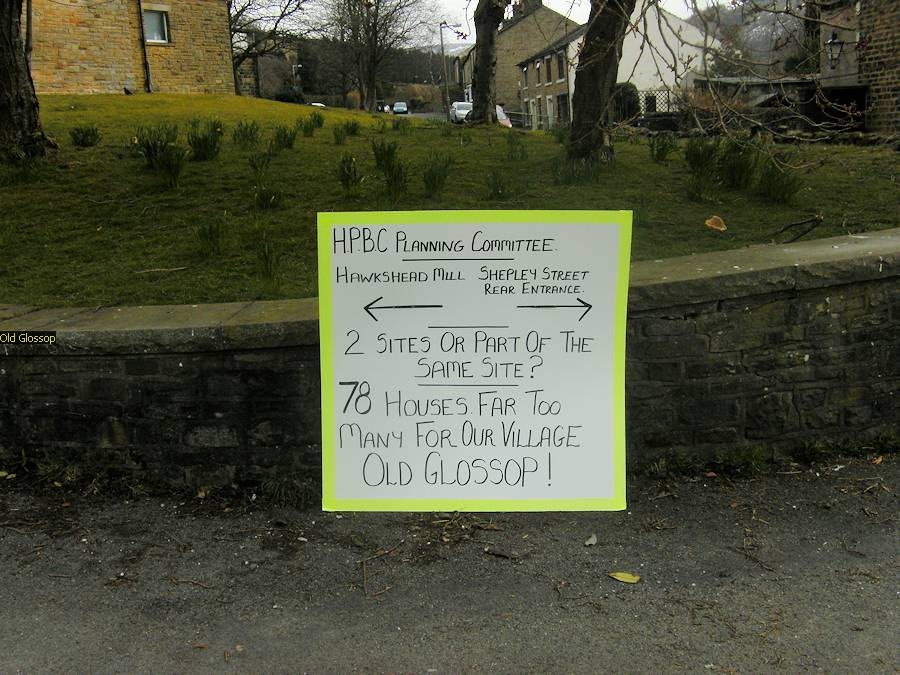 H.P.B.C PLANNING COMMITTEE.
HAWKSHEAD MILL SHEPLEY STREET
REAR ENTRANCE.
2 SITES OR PART OF THE
SAME SITE?
78 HOUSES. FAR TOO
MANY FOR OUR VILLAGE
OLD GLOSSOP!
Old Glossop